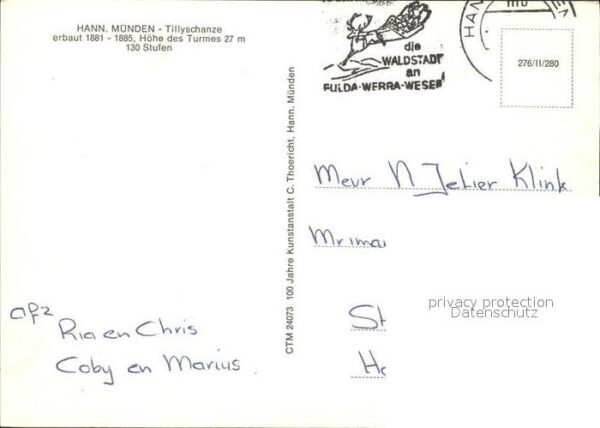 HANN. MÜNDEN - Tillyschanze
erbaut 1881 - 1885, Höhe des Turmes 27 m
130 Stufen
die
WALDSTADT
an
FULDA-WERRA-WESER
HAN
276/II/280
CTM 24073 100 Jahre Kunstanstalt C. Thoericht, Hann. Münden
Mevr N Jetier Klink
St
privacy protection
Datenschutz
afz
Ria en Chris
Coby en Marius.